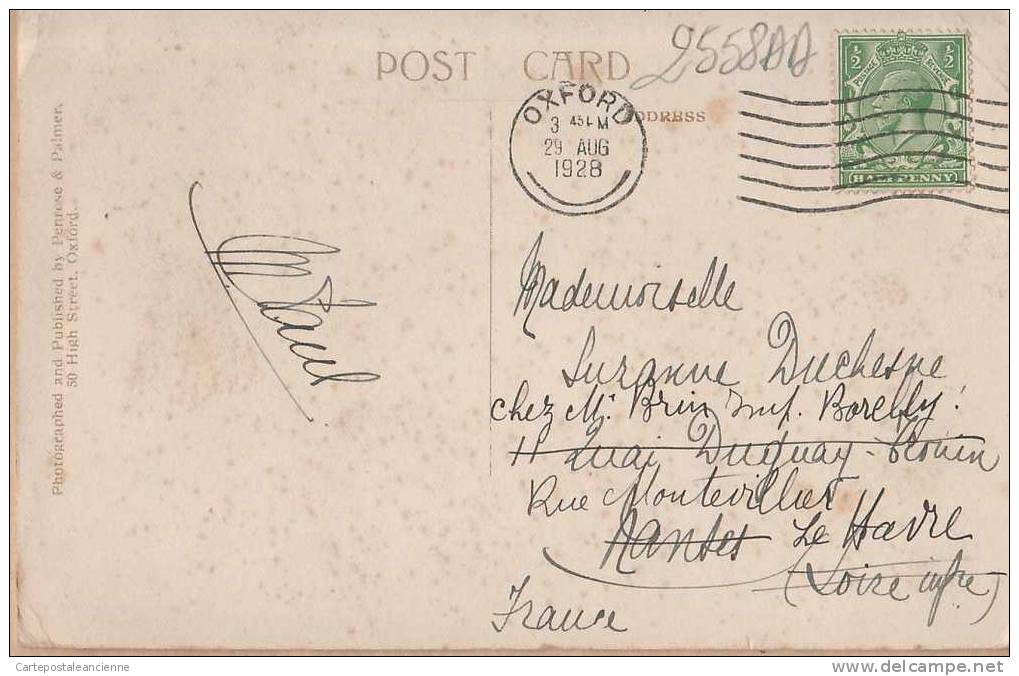 POST CARD
2558AA
ADDRESS
OXFORD
3 45 PM
29 AUG
1928
1/2 1/2
POSTAGE REVENUE
HALFPENNY
Photographed and Published by Penrose & Palmer.
50 High Street, Oxford.
Mademoiselle
Suzanne Duchesne
chez Mr Brin Imp. Borelly
11 Quai Duguay-Trouin
Rue Montevilliers
Nantes Le Havre
(Loire infre)
France
Cartepostaleancienne
www.delcampe.net